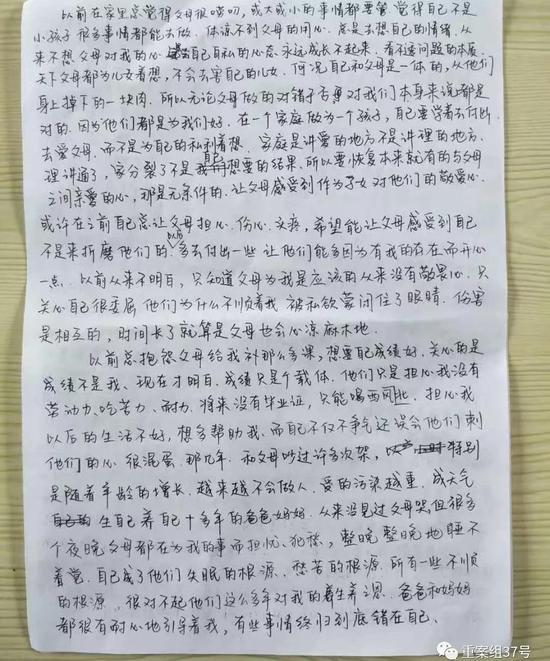 以前在家里总觉得父母很唠叨，或大或小的事情都要管 觉得自己不是
小孩子 很多事情都能去做. 体凉不到父母的用心. 总是去想自己的情绪. 从
来不想父母对我的心 自己自私的心态 永远成长不起来. 看不透问题的本质.
天下父母都为儿女看想，不会去害自己的儿女. 何况自己和父母是一体的，从他们
身上掉下的一块肉. 所以无论父母做的对错于否 对我们本身来说都是
对的. 因为他们都是为我们好. 在一个家庭做为一个孩子，自己要学着去付出
去爱父母. 而不是为自己的私利看想. 家庭是讲爱的地方不是讲理的地方.
理讲通了，家分裂了不是自己想要的结果. 所以要恢复本来就有的与父母
之间亲爱的心，那是无条件的. 让父母感受到作为子女对他们的敬爱心.
或许在之前自己总让父母担心. 伤心. 头疼，希望能让父母感受到自己
不是来折磨他们的. 多去付出一些 让他们能多因为有我的存在而开心
一点. 以前从来不明白，只知道父母为我是应该的从来没有敬畏心. 只
关心自己很委屈 他们为什么不顺着我 被私欲蒙闭住了眼睛. 伤害
是相互的，时间长了就算是父母也会心凉麻木地.
以前总抱怨父母给我补那么多课，想要自己成绩好. 关心的是
成绩不是我. 现在才明白. 成绩只是个载体. 他们只是担心我没有
劳动力. 吃苦力. 耐力. 将来没有毕业证，只能喝西北风. 担心我
以后的生活不好，想多帮助我. 而自己不仅不争气还误会他们刺
他们的心 很混蛋. 那几年. 和父母吵过许多次架， 特别
是随着年龄的增长. 越来越不会做人. 爱的污染越重. 成天气
生自己养自己十多年的爸爸妈妈. 从来没见过父母哭.但很多
个夜晚父母都在为我的事而担忧. 犯愁，整晚整晚地睡不
着觉. 自己成了他们失眠的根源. 愁苦的根源. 所有一些不顺
的根源. 很对不起他们这么多年对我的养生养之恩. 爸爸和妈妈
都很有耐心地引导着我，有些事情终归到底错在自己.
重案组37号